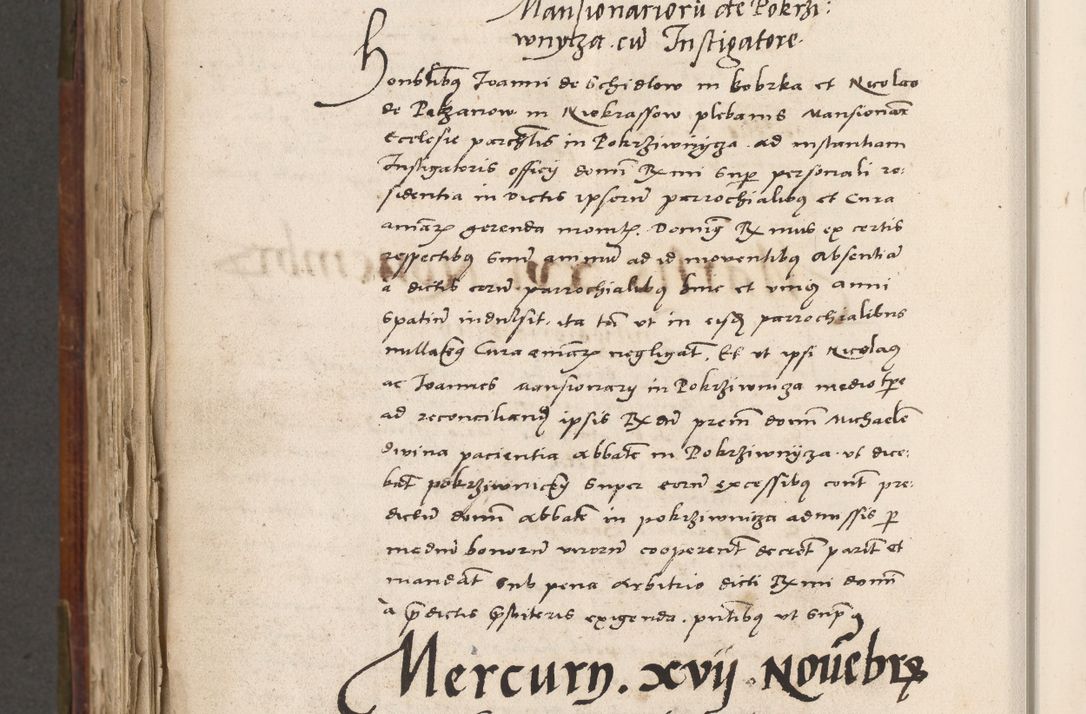 Mansionariorū de Pokrzi:
wnytza cū Instigatore
Honblibꝫ Joanni de Schidlow in kobrka et Nicolao
de Pelzanow in Niekrassow plebanis Mansionar
Ecclesie parochlis in Pokrziwnycza ad instantiam
Instigatoris officy domi Rxmi sup personali re:
sidentia in dictis ipsorū parrochialibꝫ et Cura
aniarꝫ gerenda monitꝭ. Dominꝫ Rxmus ex certis
respectibꝫ Suū animū ad id moventibꝫ absentiā
a dictis eorū parrochialibꝫ hinc et uniꝫ anni
spatiū indulsit. ita tn ut in eisdꝫ parrochialibus
nullatenꝫ Cura aniarꝫ negligat. Et ut ipsi Nicolaꝫ
ac Joannes mansionary in Pokrziwnicza medio tpe
ad reconciliandꝫ ipsis Rxdū prem domi Michaelē
divina pacientia abbate in Pokrziwnycza ut dice:
bat pokrziwnicky super eorū excessibꝫ cont pre:
dictū domi abbate in pokrziwnicza admissis p
mediū bonorū virorū cooperent decret parit et
mandat sub pena arbitrio dicti Rxmi domi
a p̄dictis p̄sbiteris exigenda. pntibꝫ ut supꝫ
Mercury. xvij. Novēbrꝭ